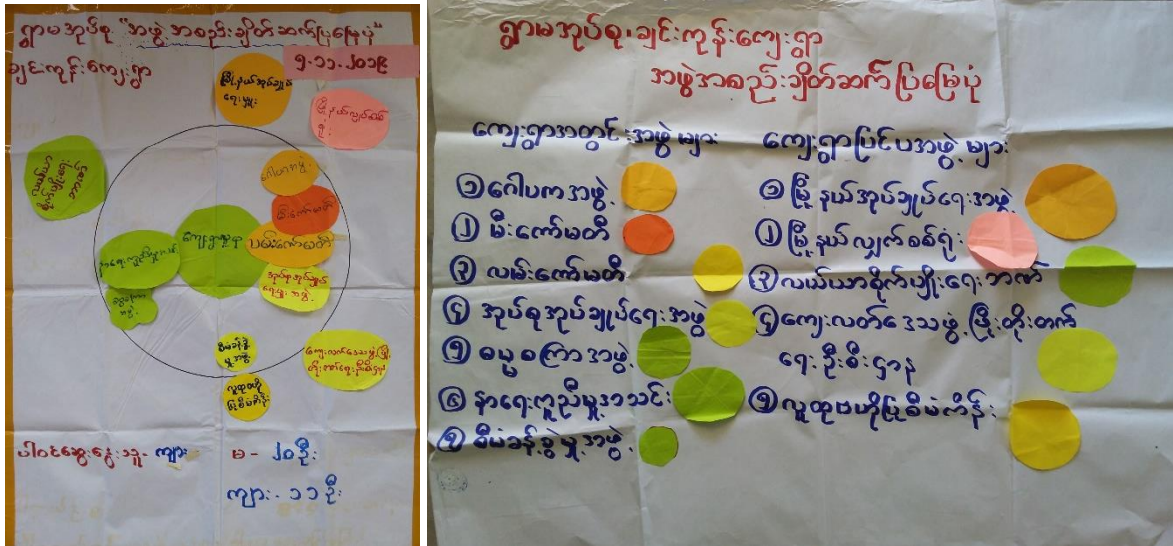 ရွာမအုပ်စု "အဖွဲ့အစည်းချိတ်ဆက်ပြမြေပုံ"
ချင်းကုန်းကျေးရွာ
၅-၁၁-၂၀၁၉
မြို့နယ်အုပ်ချုပ်
ရေးမှူး
ဂေါပကအဖွဲ့
မီးကော်မတီ
လမ်းကော်မတီ
အုပ်စုအုပ်ချုပ်
ရေးမှူးအဖွဲ့
နာရေးကူညီမှုအသင်း
စီမံခန့်ခွဲ
မှုအဖွဲ့
လူထုဗဟို
ပြုစီမံကိန်း
ကျေးလက်ဒေသဖွံ့ဖြိုး
တိုးတက်ရေးဦးစီးဌာန
ပါဝင်ဆွေးနွေးသူ- ကျား မ - ၂၀ဦး
ကျား - ၁၁ဦး
ရွာမအုပ်စု၊ချင်းကုန်းကျေးရွာ
အဖွဲ့အစည်းချိတ်ဆက်ပြမြေပုံ
ကျေးရွာအတွင်းအဖွဲ့များ
၁ ဂေါပကအဖွဲ့
၂ မီးကော်မတီ
၃ လမ်းကော်မတီ
၄ အုပ်စုအုပ်ချုပ်ရေးအဖွဲ့
၅ ဓမ္မစကြာအဖွဲ့
၆ နာရေးကူညီမှုအသင်း
၇ စီမံခန့်ခွဲမှုအဖွဲ့
ကျေးရွာပြင်ပအဖွဲ့များ
၁ မြို့နယ်အုပ်ချုပ်ရေးအဖွဲ့
၂ မြို့နယ်လျှပ်စစ်ရုံး
၃ လယ်ယာစိုက်ပျိုးရေးဘဏ်
၄ ကျေးလတ်ဒေသဖွံ့ဖြိုးတိုးတက်
ရေးဦးစီးဌာန
၅ လူထုဗဟိုပြုစီမံကိန်း